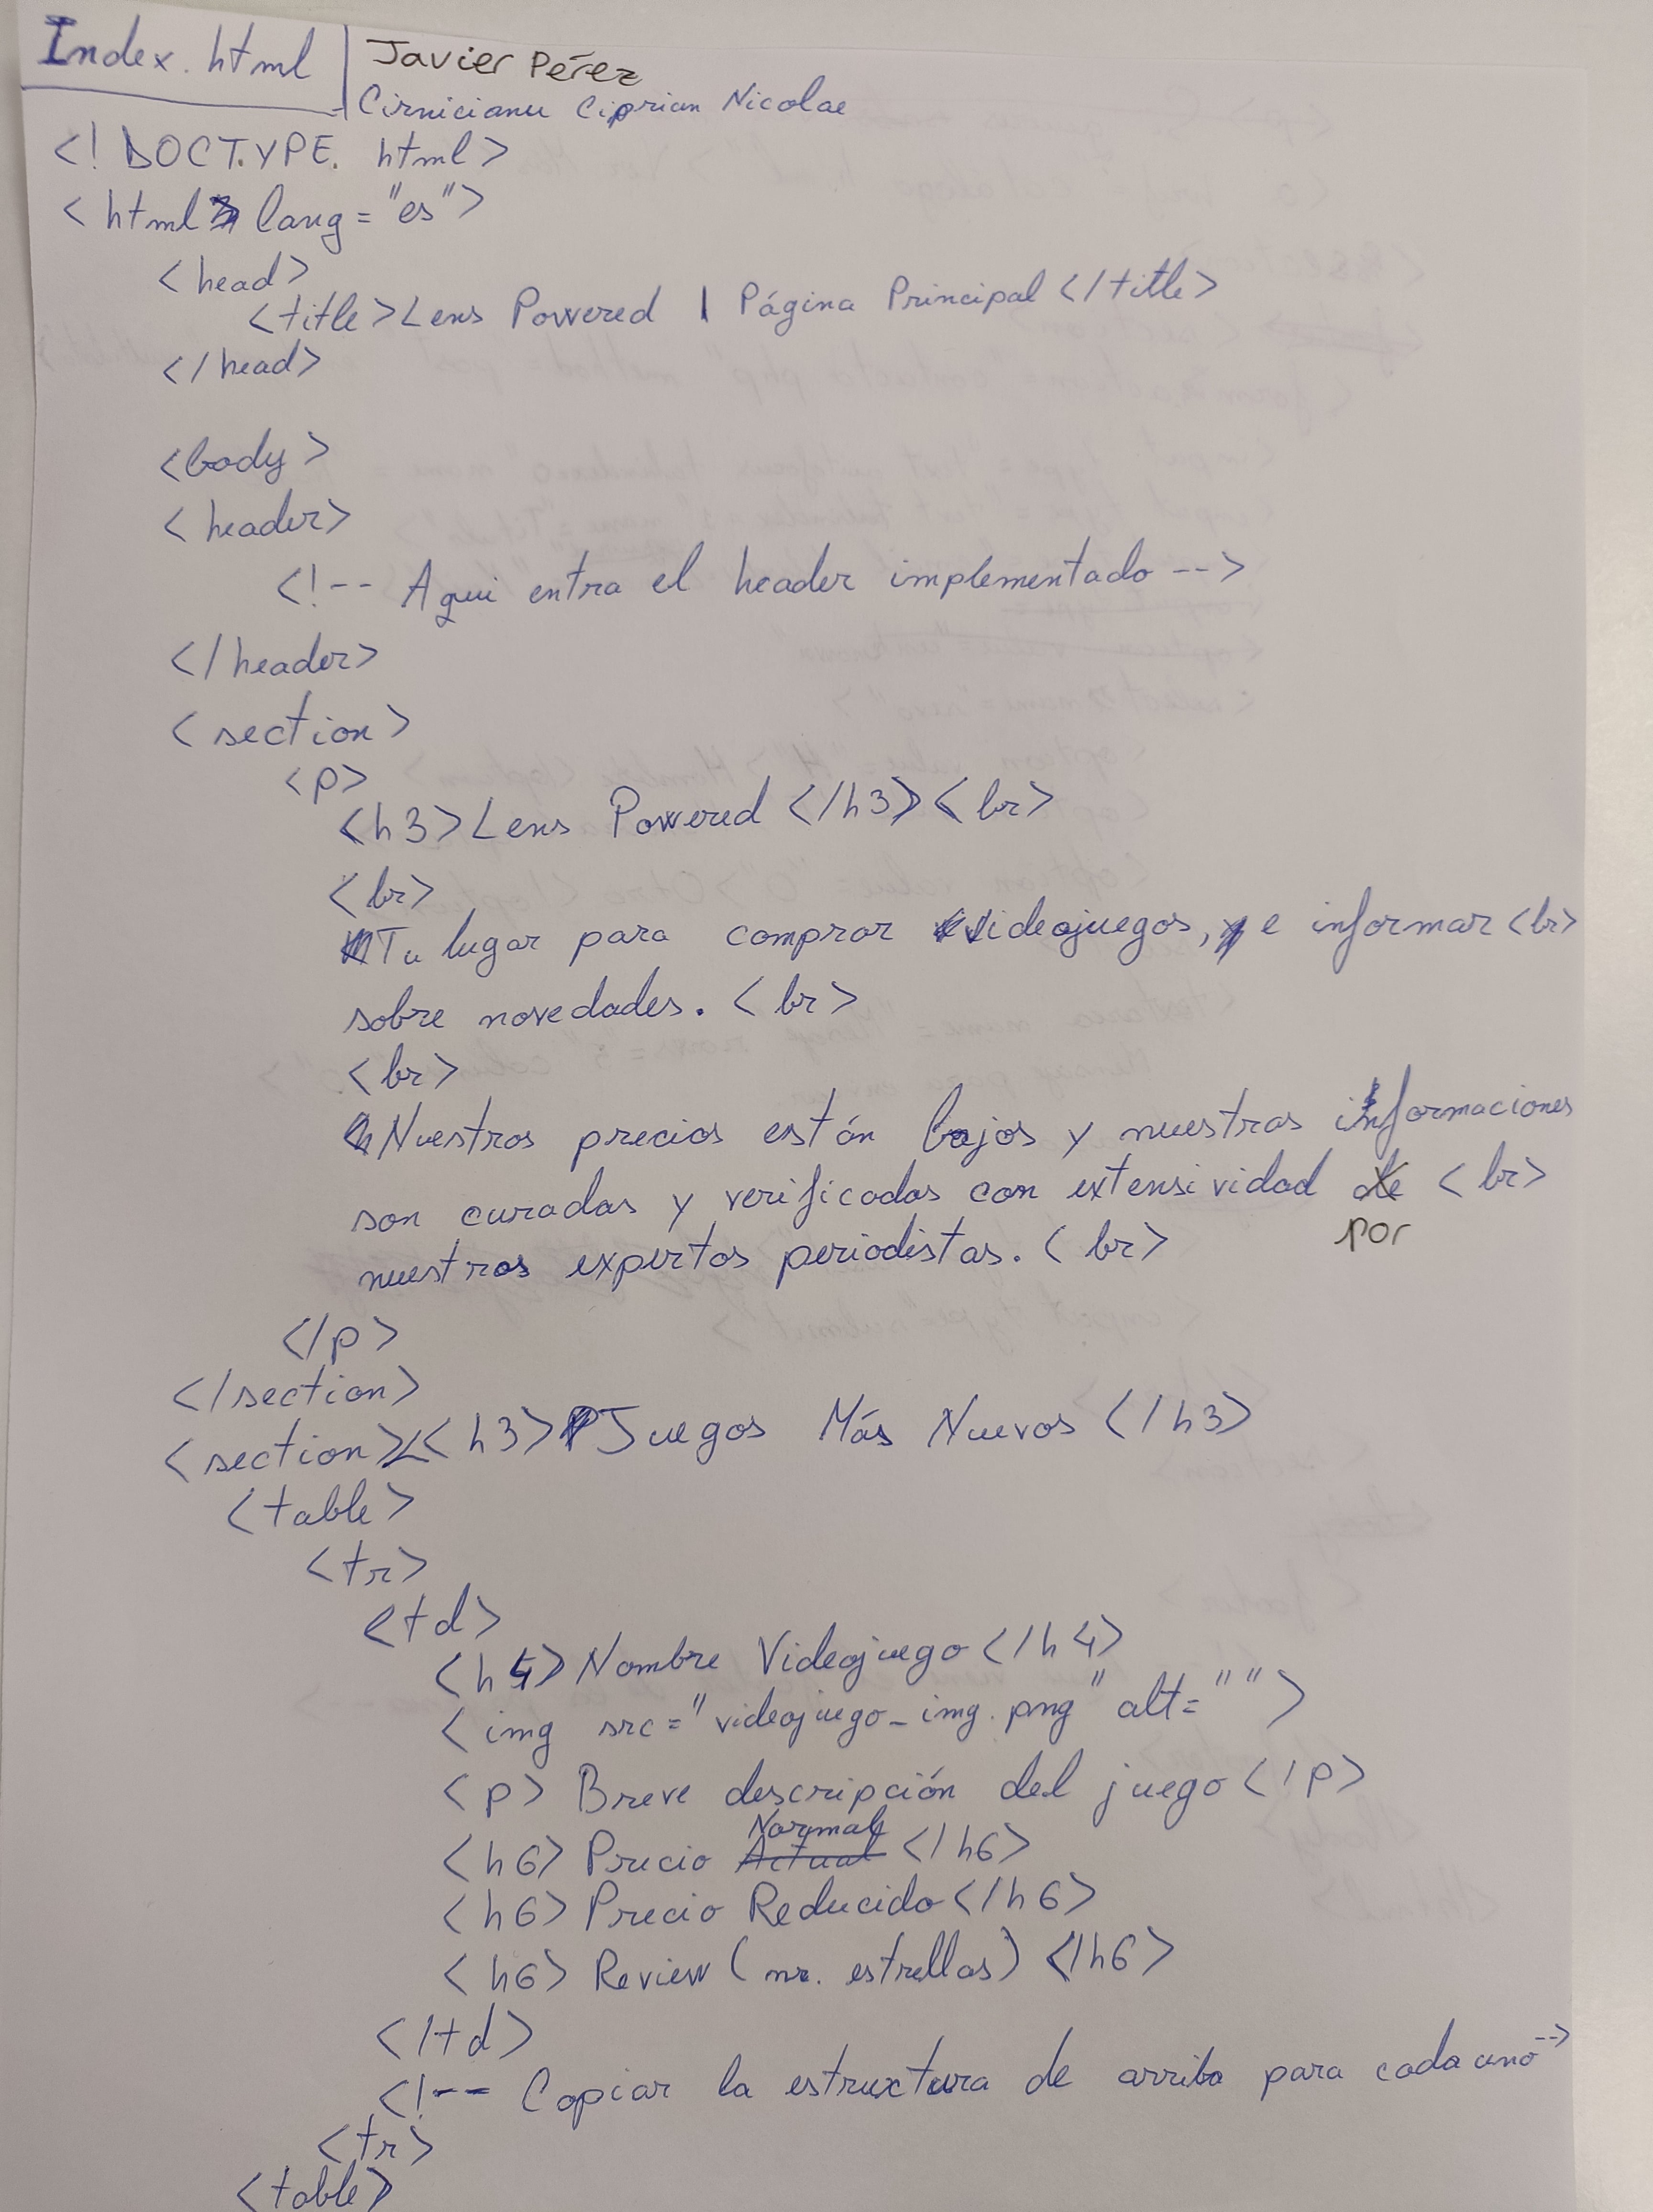 Index.html
Javier Pérez
Cirnicianu Ciprian Nicolae
<!DOCTYPE. html>
<html lang="es">
<head>
<title>Lens Powered | Página Principal</title>
</head>
<body>
<header>
<!-- Aqui entra el header implementado -->
</header>
<section>
<p>
<h3>Lens Powered</h3><br>
<br>
Tu lugar para comprar videojuegos, e informar<br>
sobre novedades.<br>
<br>
Nuestros precios están bajos y nuestras informaciones
son curadas y verificadas con extensividad por <br>
nuestros expertos periodistas.<br>
</p>
</section>
<section><h3>Juegos Más Nuevos</h3>
<table>
<tr>
<td>
<h4>Nombre Videojuego</h4>
<img src="videojuego_img.png" alt="">
<p>Breve descripción del juego</p>
<h6>Precio Normal</h6>
<h6>Precio Reducido</h6>
<h6>Review (nr. estrellas)</h6>
</td>
<!-- Copiar la estructura de arriba para cada uno -->
<tr>
<table>